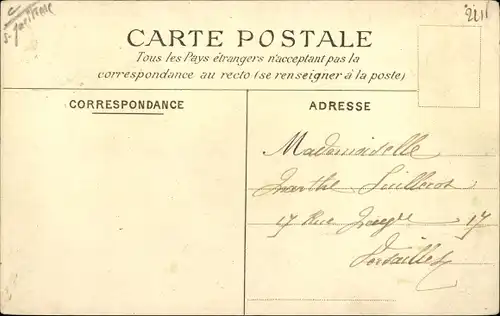 CARTE POSTALE
Tous les Pays étrangers n'acceptant pas la
correspondance au recto (se renseigner à la poste)
CORRESPONDANCE
ADRESSE
Mademoiselle
17 Rue 17
Versailles